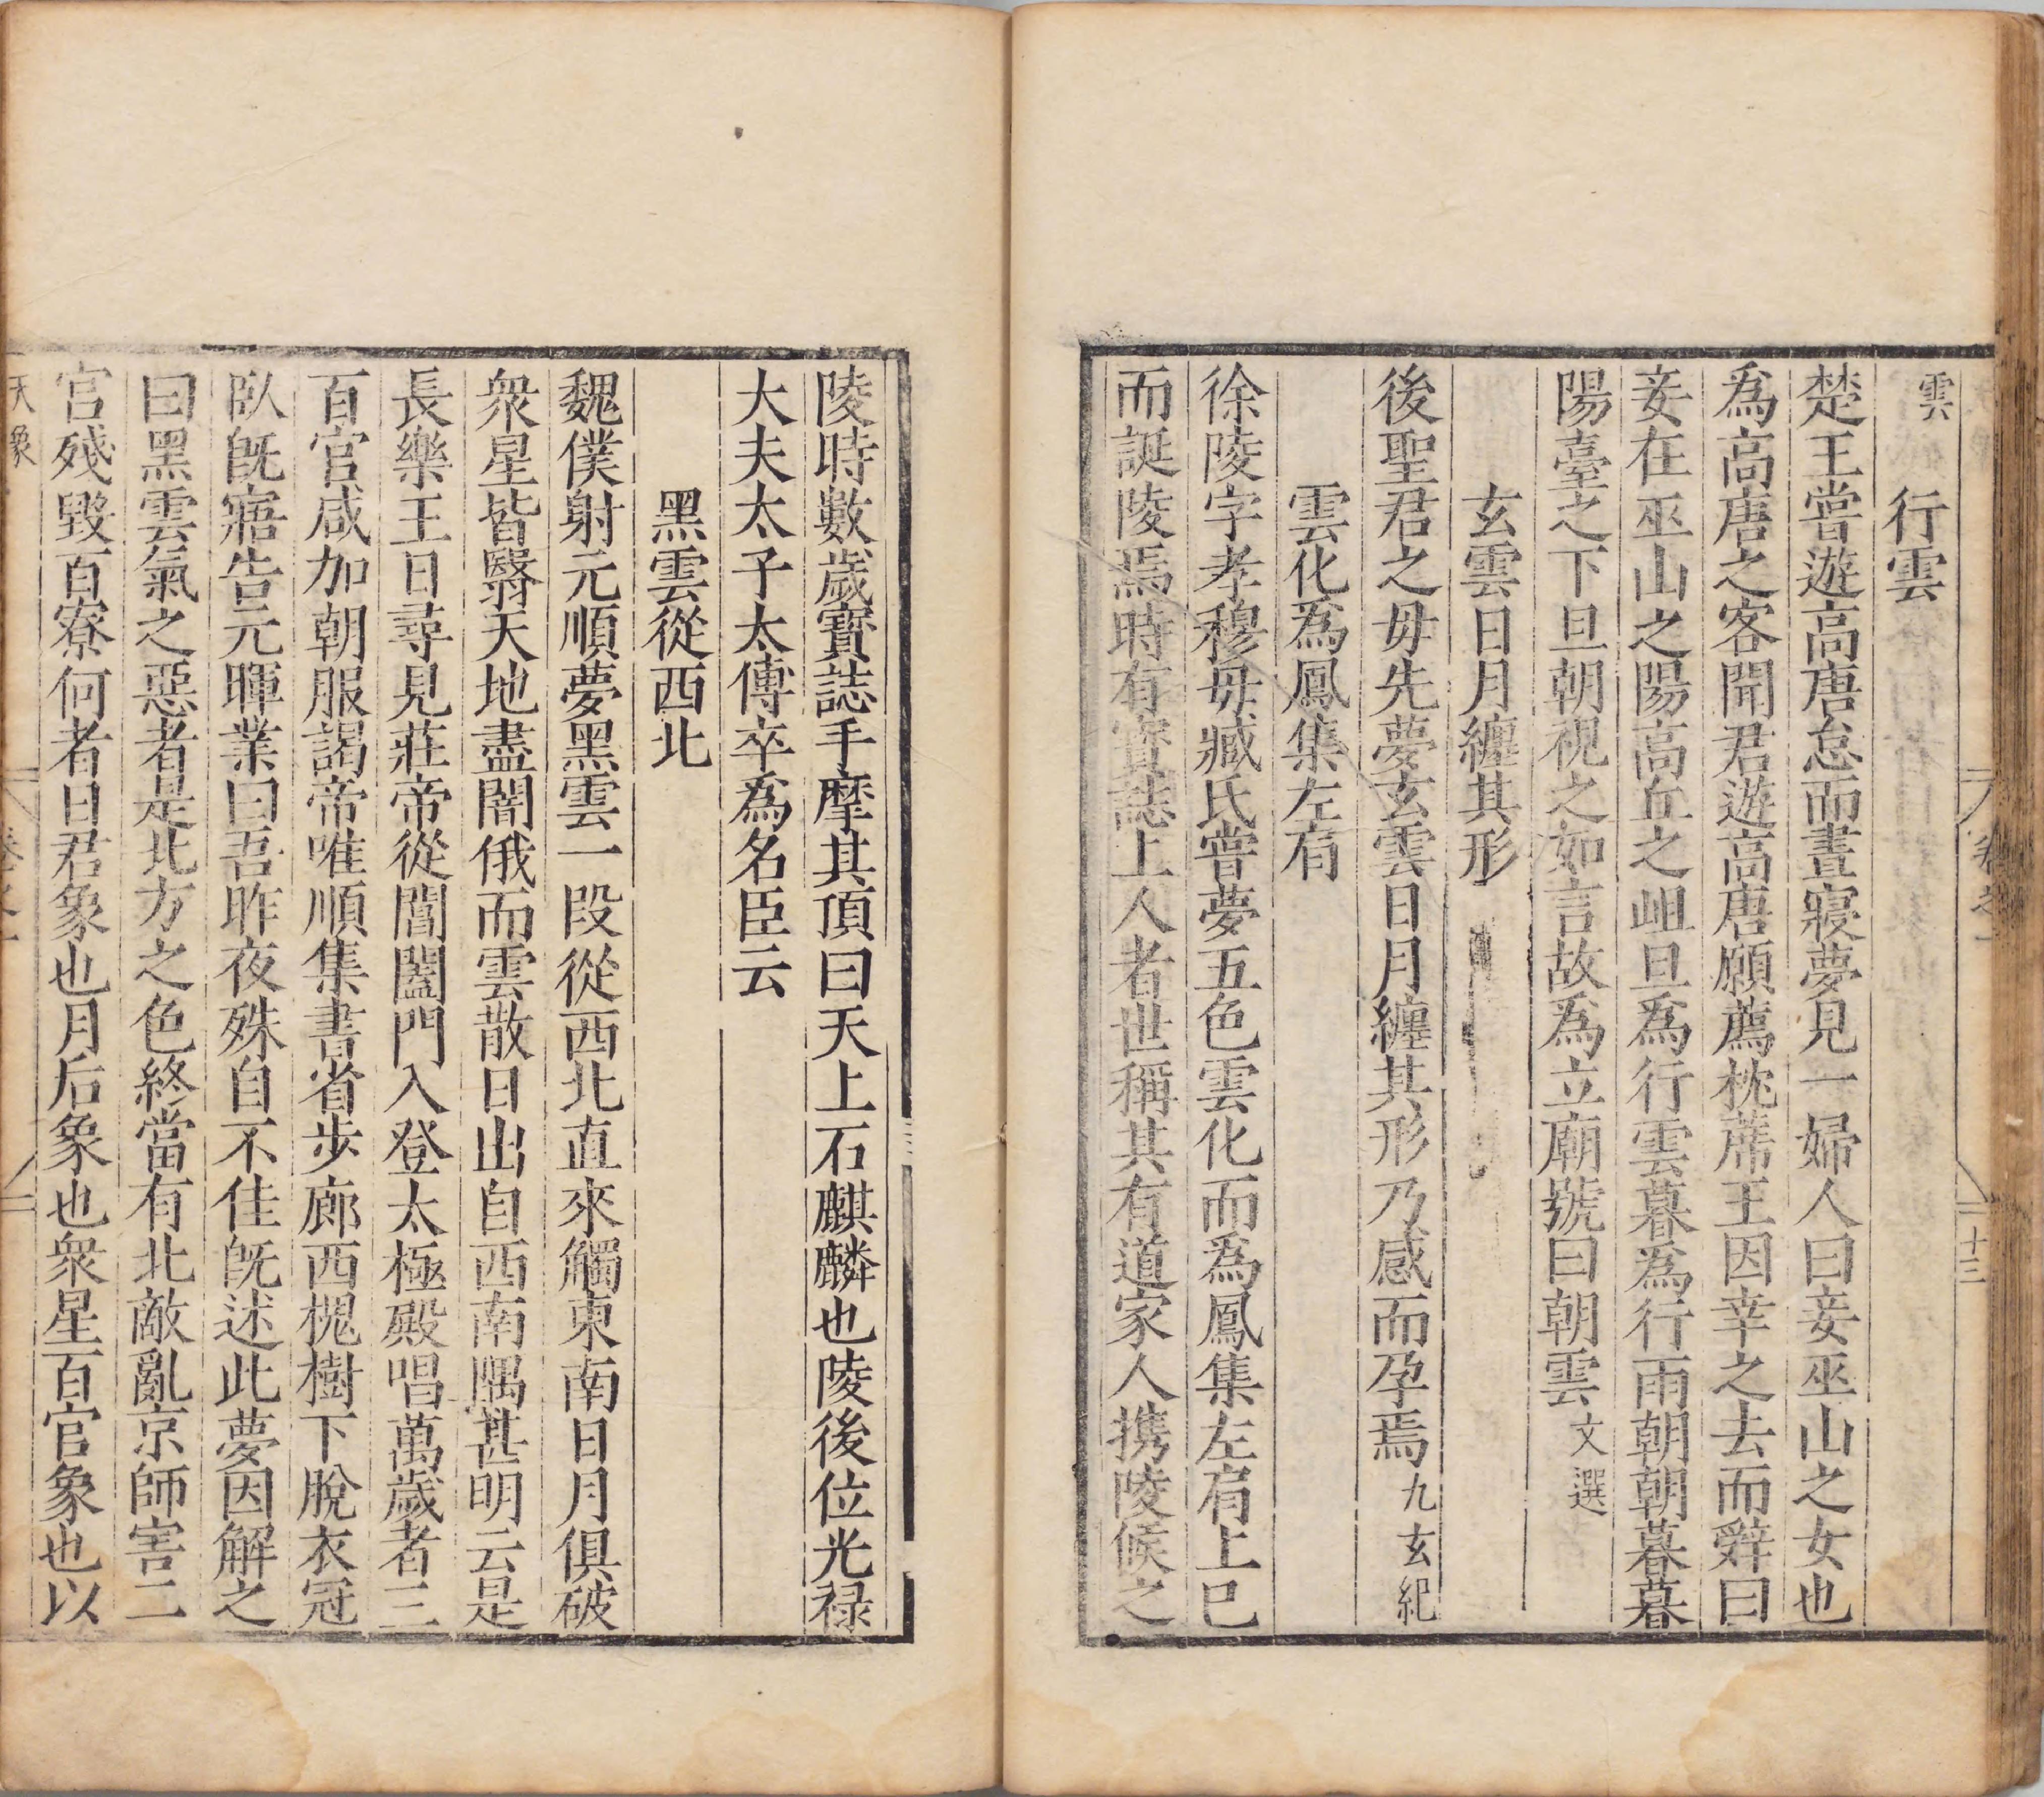 雲
行雲
楚王嘗遊高唐怠而晝寢夢見一婦人曰妾巫山之女也
爲高唐之客聞君遊高唐願薦枕蓆王因幸之去而辭曰
妾在巫山之陽高丘之岨旦爲行雲暮爲行雨朝朝暮暮
陽臺之下旦朝視之如言故爲立廟號曰朝雲文選
玄雲日月纏其形
後聖君之毋先夢玄雲日月纏其形乃感而孕焉九玄紀
雲化爲鳳集左肩
徐陵字孝穆毋臧氏嘗夢五色雲化而爲鳳集左肩上巳
而誕陵焉時有寶誌上人者世稱其有道家人携陵候之
卷之一
十三
陵時數歲寶誌手摩其頂曰天上石麒麟也陵後位光禄
大夫太子太傅卒爲名臣云
黑雲從西北
魏僕射元順夢黑雲一段從西北直來觸東南日月俱破
衆星皆翳天地盡闇俄而雲散日出自西南隅甚明云是
長樂王日尋見莊帝從閶闔門入登太極殿唱萬歲者三
百官咸加朝服謁帝唯順集書省步廊西槐樹下脫衣冠
臥既寤告元暉業曰吾昨夜殊自不佳既述此夢因解之
曰黑雲氣之惡者是北方之色終當有北敵亂京師害二
宫殘毀百寮何者日君象也月后象也衆星百官象也以
天象
卷之一